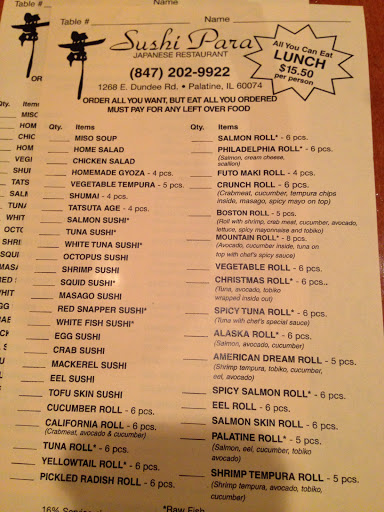 Table #
Name
Table #
Name
Sushi Para
JAPANESE RESTAURANT
(847) 202-9922
1268 E. Dundee Rd. • Palatine, IL 60074
All You Can Eat
LUNCH
$15.50
per person
ORDER ALL YOU WANT, BUT EAT ALL YOU ORDERED
MUST PAY FOR ANY LEFT OVER FOOD
Qty. Items
MISO SOUP
HOME SALAD
CHICKEN SALAD
HOMEMADE GYOZA - 4 pcs.
VEGETABLE TEMPURA - 5 pcs.
SHUMAI - 4 pcs.
TATSUTA AGE - 4 pcs.
SALMON SUSHI*
TUNA SUSHI*
WHITE TUNA SUSHI*
OCTOPUS SUSHI
SHRIMP SUSHI
SQUID SUSHI*
MASAGO SUSHI
RED SNAPPER SUSHI*
WHITE FISH SUSHI*
EGG SUSHI
CRAB SUSHI
MACKEREL SUSHI
EEL SUSHI
TOFU SKIN SUSHI
CUCUMBER ROLL - 6 pcs.
CALIFORNIA ROLL - 6 pcs.
(Crabmeat, avocado & cucumber)
TUNA ROLL* - 6 pcs.
YELLOWTAIL ROLL* - 6 pcs.
PICKLED RADISH ROLL - 6 pcs.
Qty. Items
SALMON ROLL* - 6 pcs.
PHILADELPHIA ROLL* - 6 pcs.
(Salmon, cream cheese,
scallion)
FUTO MAKI ROLL - 4 pcs.
CRUNCH ROLL - 6 pcs.
(Crabmeat, cucumber, tempura chips
inside, masago, spicy mayo on top)
BOSTON ROLL - 5 pcs.
(Roll with shrimp, crab meat, cucumber, avocado,
lettuce, spicy mayonnaise and tobiko)
MOUNTAIN ROLL* - 8 pcs.
(Avocado, cucumber inside, tuna on
top with chef's spicy sauce)
VEGETABLE ROLL - 6 pcs.
CHRISTMAS ROLL* - 6 pcs..
(Tuna, avocado, tobiko
wrapped inside out)
SPICY TUNA ROLL* - 6 pcs.
(Tuna with chef's special sauce)
ALASKA ROLL* - 6 pcs.
(Salmon, avocado, cucumber)
AMERICAN DREAM ROLL - 5 pcs.
(Shrimp tempura, tobiko, cucumber,
eel, avocado)
SPICY SALMON ROLL* - 6 pcs.
EEL ROLL - 6 pcs.
SALMON SKIN ROLL - 6 pcs.
PALATINE ROLL* - 5 pcs.
(Salmon, eel, cucumber, tobiko,
avocado)
SHRIMP TEMPURA ROLL - 5 pcs.
(Shrimp tempura, avocado, tobiko,
cucumber)
*Raw Fish